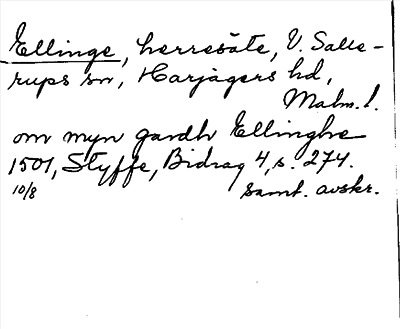 Ellinge, herresäte, V. Salle-
rups sn, Harjagers hd,
Malm. l.
om myn gardh Ellinghe
1501, Styffe, Bidrag 4, s. 274.
10/8 samt. avskr.